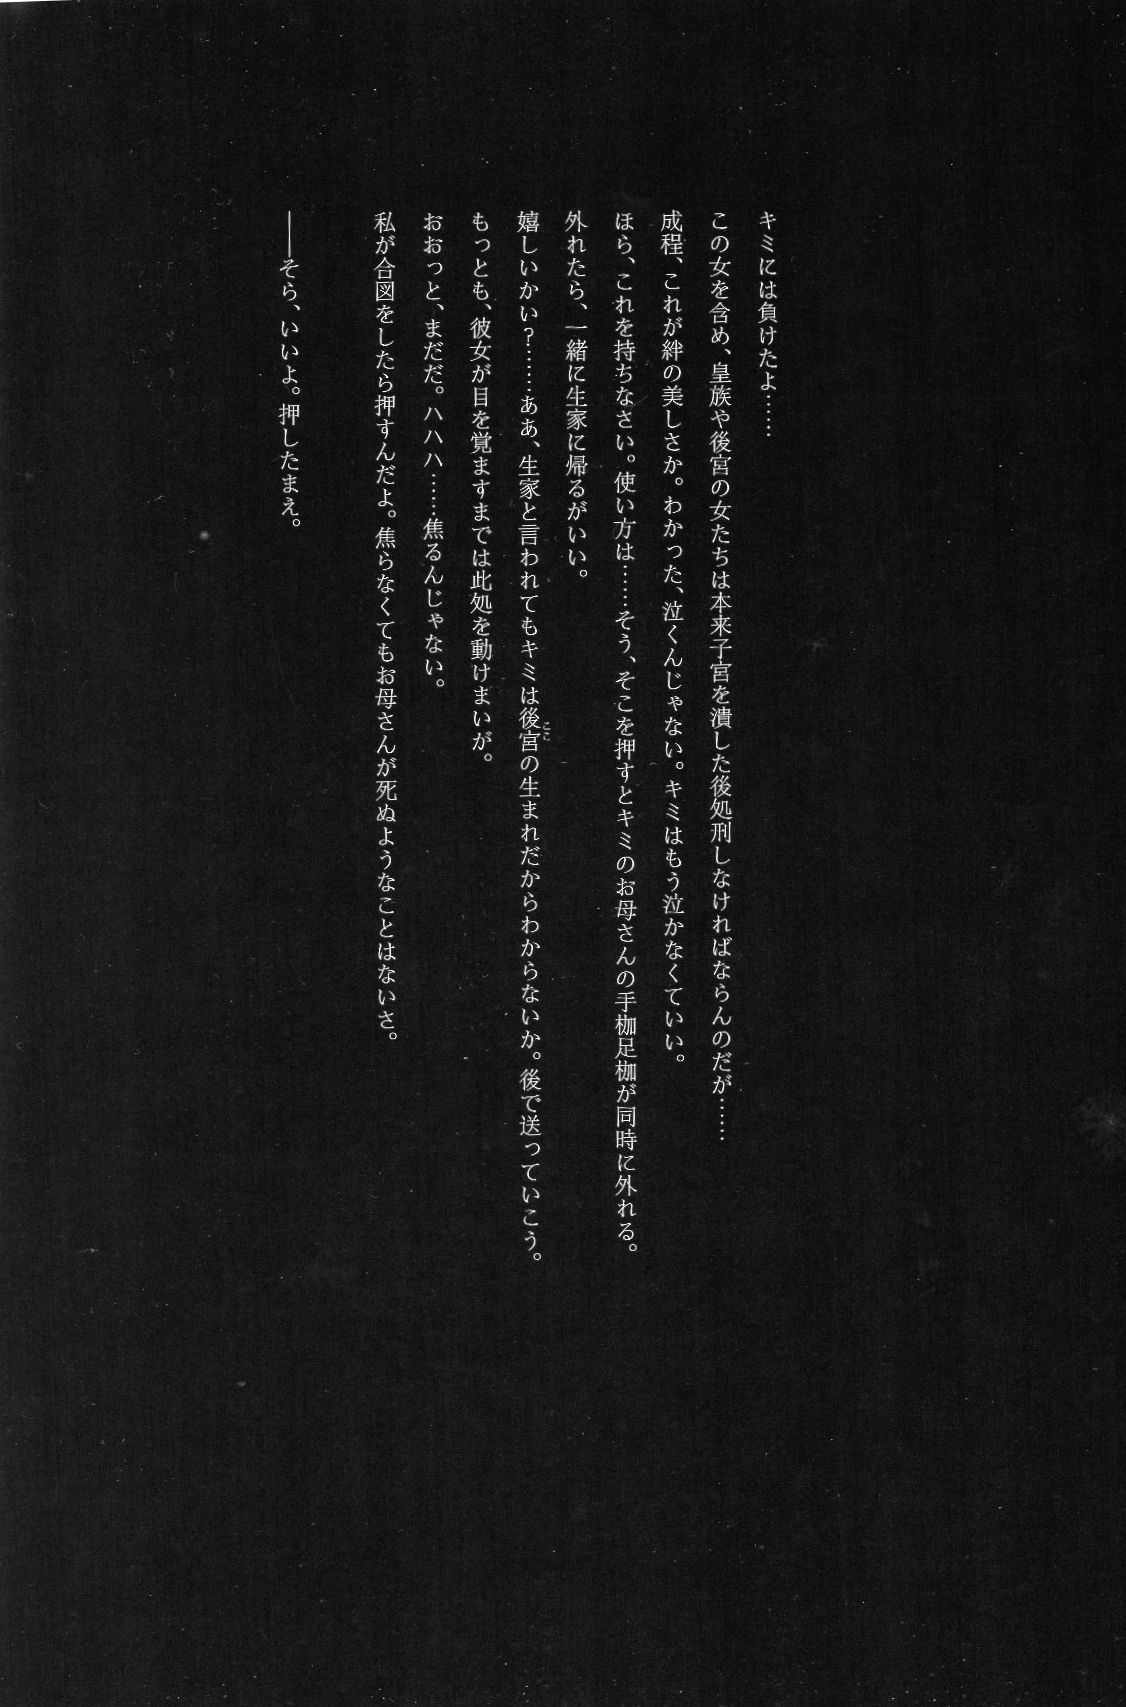 キミには負けたよ……
この女を含め、皇族や後宮の女たちは本来子宮を潰した後処刑しなければならんのだが……
成程、これが絆の美しさか。わかった、泣くんじゃない。キミはもう泣かなくていい。
ほら、これを持ちなさい。使い方は……そう、そこを押すとキミのお母さんの手枷足枷が同時に外れる。
外れたら、一緒に生家に帰るがいい。
嬉しいかい？……ああ、生家と言われてもキミは後宮の生まれだからわからないか。後で送っていこう。
ここ
もっとも、彼女が目を覚ますまでは此処を動けまいが。
おおっと、まだだ。ハハハ……焦るんじゃない。
私が合図をしたら押すんだよ。焦らなくてもお母さんが死ぬようなことはないさ。
――そら、いいよ。押したまえ。